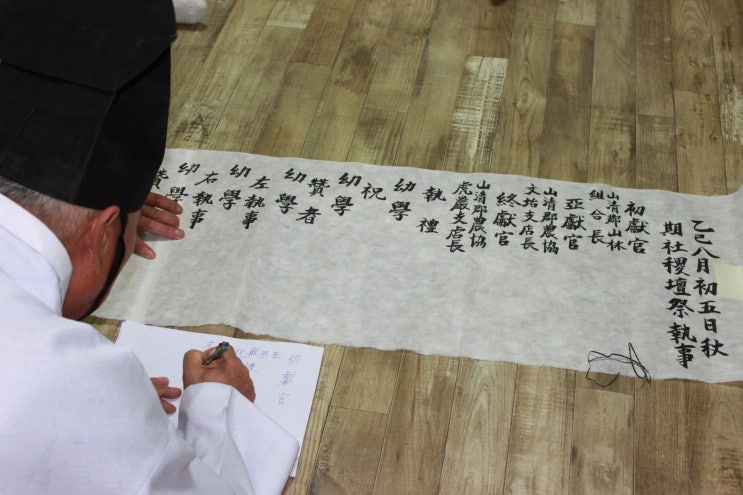 乙巳八月初五日秋
期社稷壇祭執事
初獻官
山清郡山林
組合長
亞獻官
山清郡農協
文坮支店長
終獻官
山清郡農協
虎巖支店長
執禮
幼學
祝
幼學
贊者
幼學
左執事
幼學
右執事
幼學
贊
初獻官